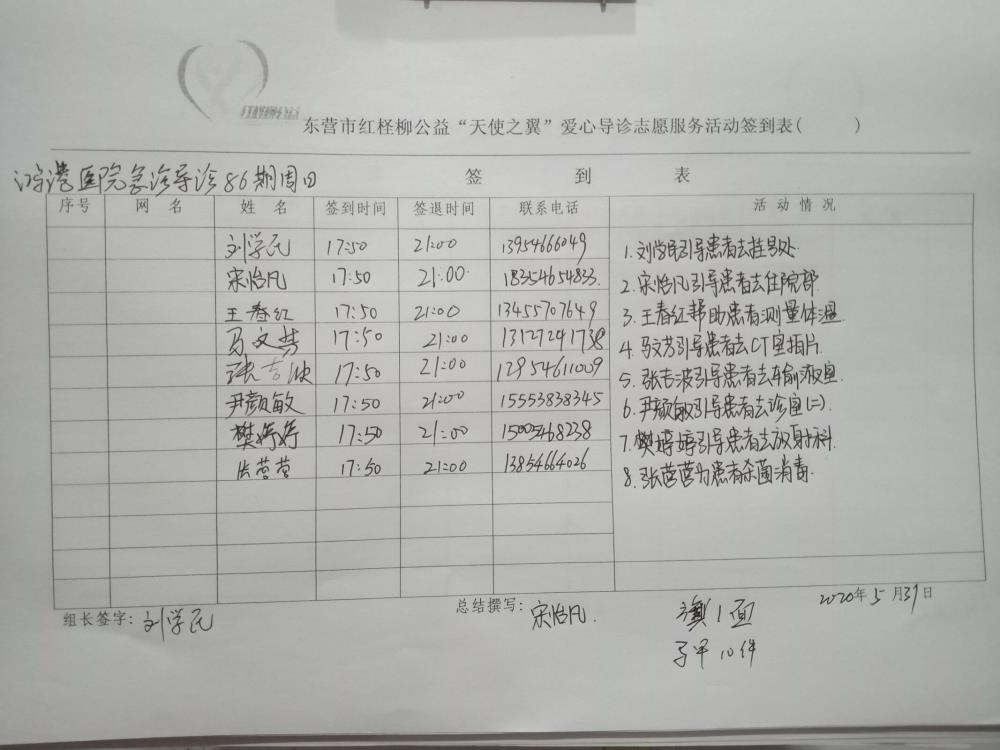 红柽柳公益
东营市红柽柳公益“天使之翼”爱心导诊志愿服务活动签到表( )
鸿港医院急诊导诊86期周日
签 到 表
序号 网 名 姓 名 签到时间 签退时间 联系电话 活 动 情 况
刘学民 17:50 21:00 13954666049
宋怡凡 17:50 21:00 18354654833
王春红 17:50 21:00 13455707649
马文芳 17:50 21:00 13127241738
张志波 17:50 21:00 12954611009
尹颜敏 17:50 21:00 15553838345
樊婷婷 17:50 21:00 15005468238
张营营 17:50 21:00 13854664026
1.刘学民引导患者去挂号处
2.宋怡凡引导患者去住院部
3.王春红帮助患者测量体温
4.马文芳引导患者去CT室拍片
5.张志波引导患者去输液室
6.尹颜敏引导患者去诊室(二)
7.樊婷婷引导患者去放射科
8.张营营为患者杀菌消毒
组长签字:刘学民
总结撰写:宋怡凡.
2020年5月31日
旗1面
马甲10件